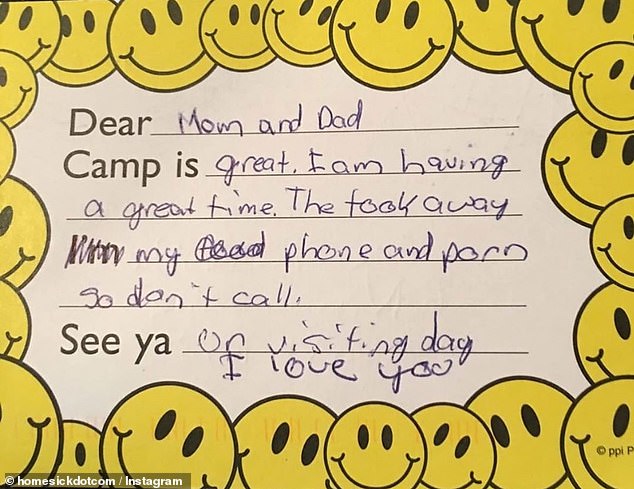 Dear Mom and Dad
Camp is great. I am having
a great time. The took away
my phone and porn
so don't call.
See ya On visiting day
I love you
© ppi P
homesickdotcom / Instagram